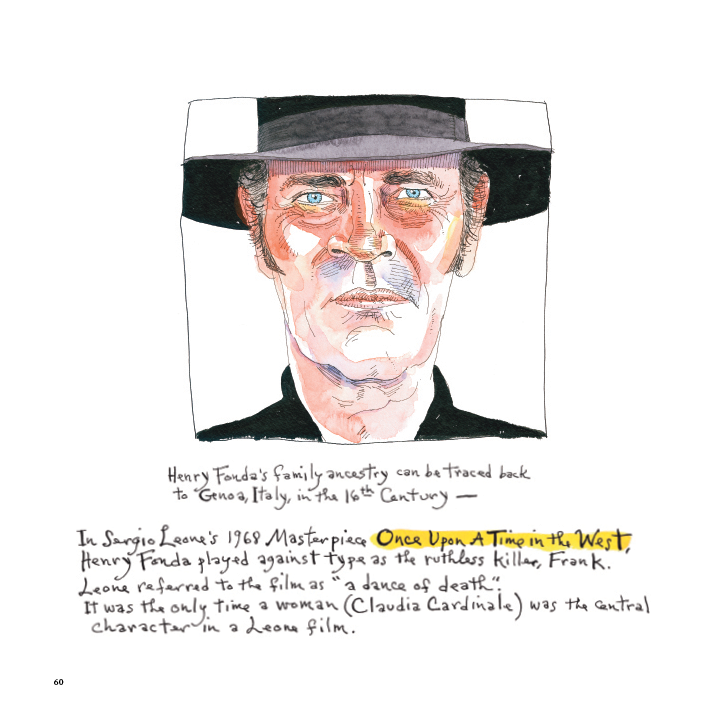 Henry Fonda's family ancestry can be traced back
to Genoa, Italy, in the 16th Century —
In Sergio Leone's 1968 Masterpiece Once Upon A Time in the West,
Henry Fonda played against type as the ruthless killer, Frank.
Leone referred to the film as "a dance of death".
It was the only time a woman (Claudia Cardinale) was the central
character in a Leone film.
60